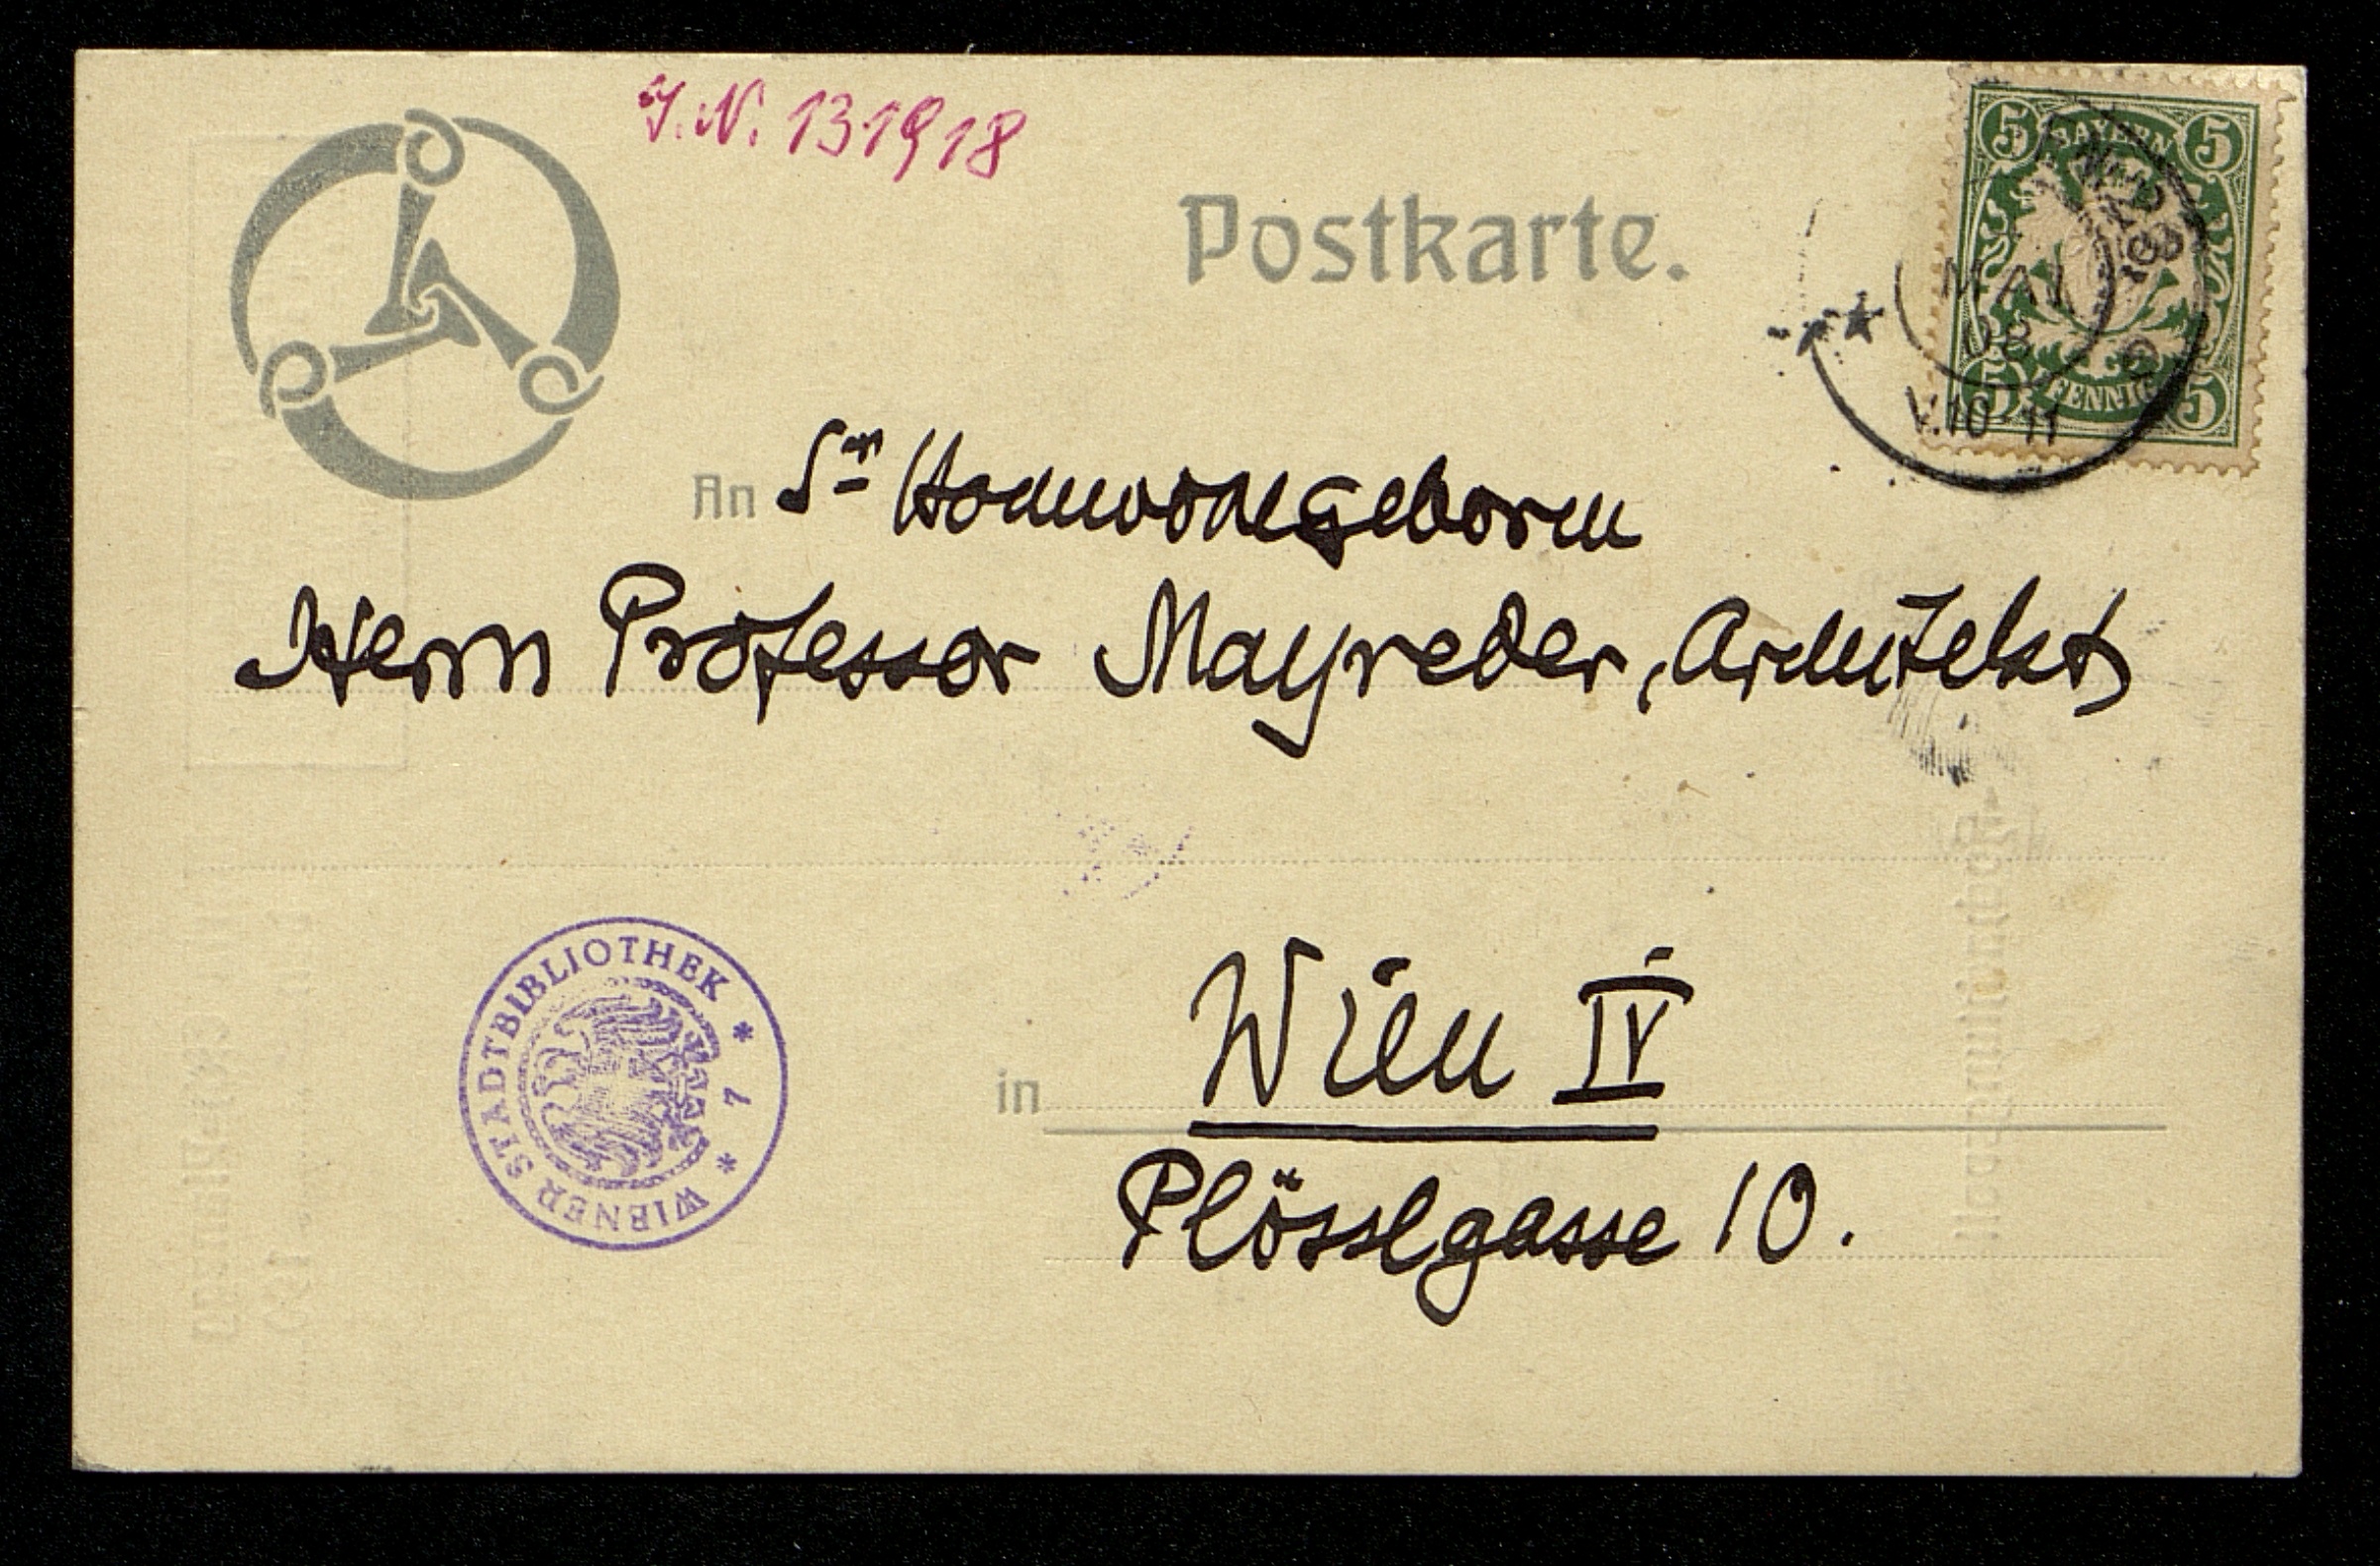 J.N. 131918
Postkarte.
5 BAYERN 5
5 PFENNIG 5
MAI
08
V.10-11
An Sr Hochwohlgeboren
Herrn Professor Mayreder, Architekt
in Wien IV
Plösslgasse 10.
WIENER STADTBIBLIOTHEK * 7 *